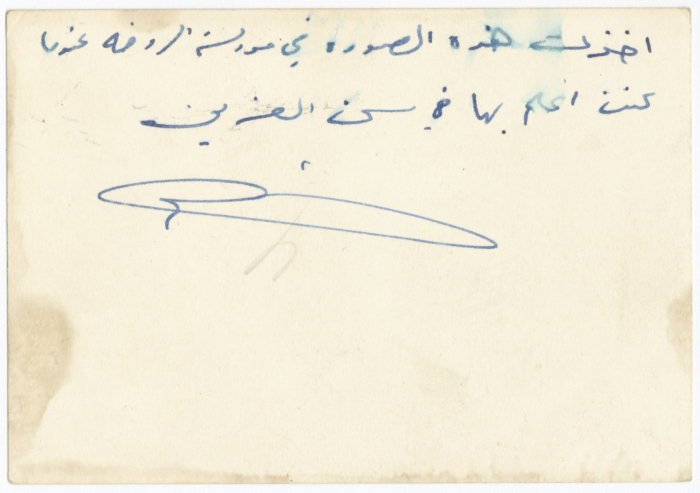 اخذت هذه الصورة في مدرسة الروضه عندما
كنت اعلم بها في سن العشرين